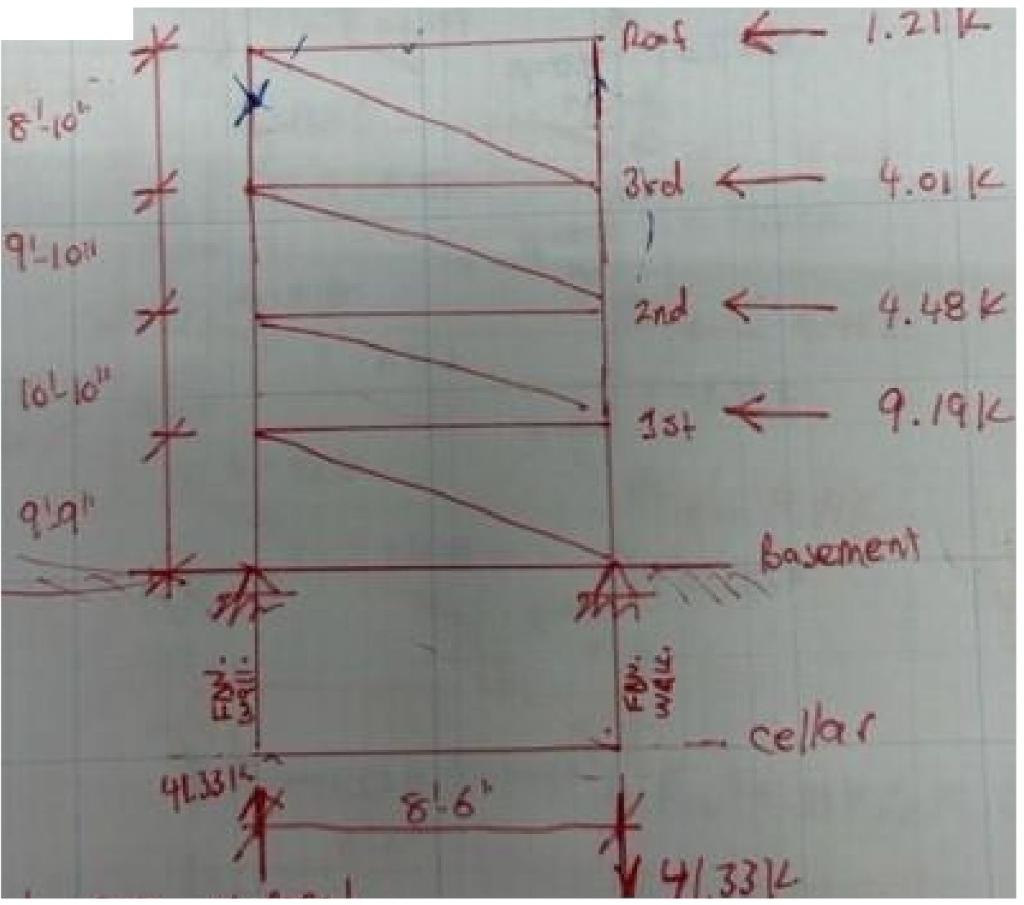 Roof ← 1.21K
8'-10"
3rd ← 4.01K
9'-10"
2nd ← 4.48K
10'-10"
1st ← 9.19K
9'-9"
Basement
FDN. WALL
FDN. WALL
cellar
41.33K
8'-6"
41.33K